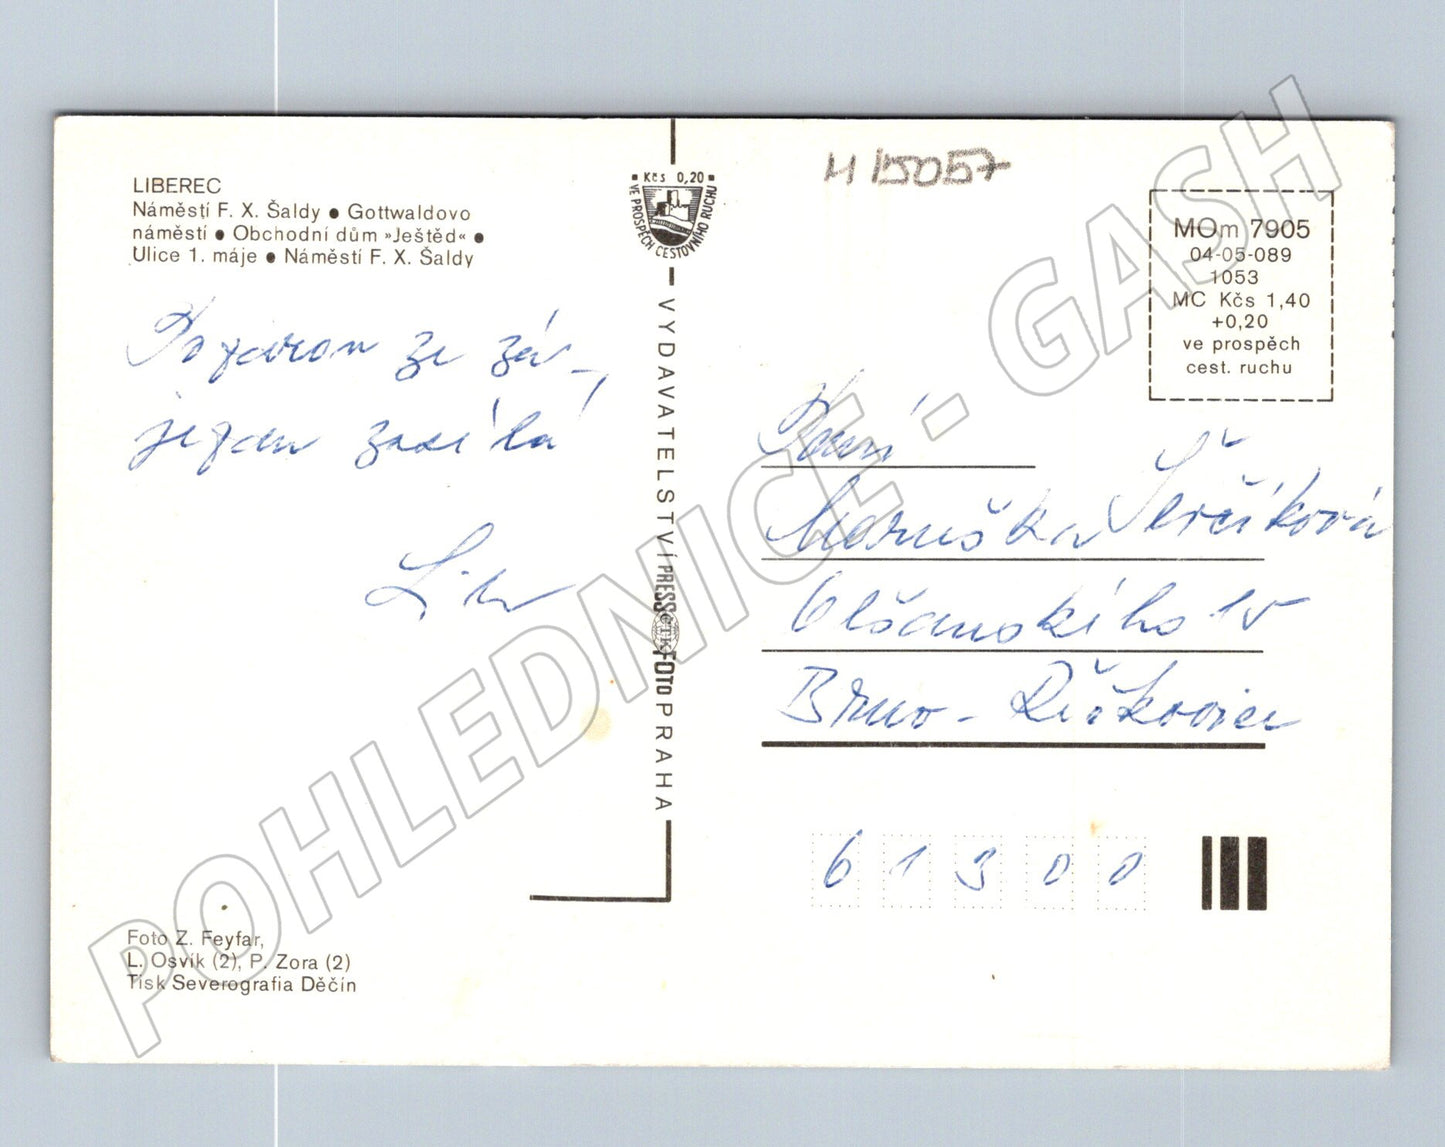 LIBEREC
Náměstí F. X. Šaldy ● Gottwaldovo
náměstí ● Obchodní dům »Ještěd« ●
Ulice 1. máje ● Náměstí F. X. Šaldy
Pozdrav ze zá-
jezdu zasílá
Foto Z. Feyfar,
L. Osvík (2), P. Zora (2)
Tisk Severografia Děčín
Kčs 0,20
VE PROSPĚCH CESTOVNÍHO RUCHU
VYDAVATELSTVÍ PRESSFOTO PRAHA
ČTK
H 15057
MOm 7905
04-05-089
1053
MC Kčs 1,40
+0,20
ve prospěch
cest. ruchu
Paní
Maruška Ševčíková
Olšanského 15
Brno - Řečkovice
61300
POHLEDNICE - GASH